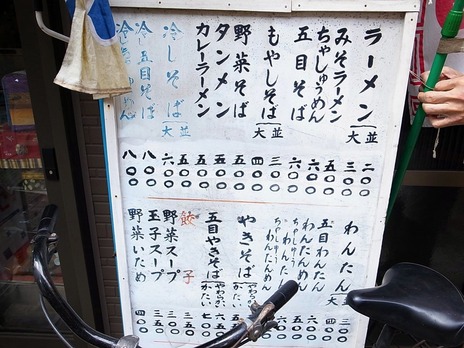 ラーメン 並 二〇〇
大 三〇〇
みそラーメン 五〇〇
ちゃしゅうめん 六〇〇
五目そば 五〇〇
もやしそば 並 三〇〇
大 四〇〇
野菜そば 五〇〇
タンメン 五〇〇
カレーラーメン 五〇〇
冷しそば 並 五〇〇
大 六〇〇
冷五目そば 八〇〇
冷 めん 八〇〇
わんたん 並 三〇〇
大 四〇〇
五目わんたん
わんたんめん
ちゃしゅうわんたん
ちゃしゅうわんたんめん
やきそば やわらかい
かたい
五目やきそば やわらかい 六〇〇
かたい 七〇〇
餃子
野菜スープ
玉子スープ
野菜いため 四〇〇